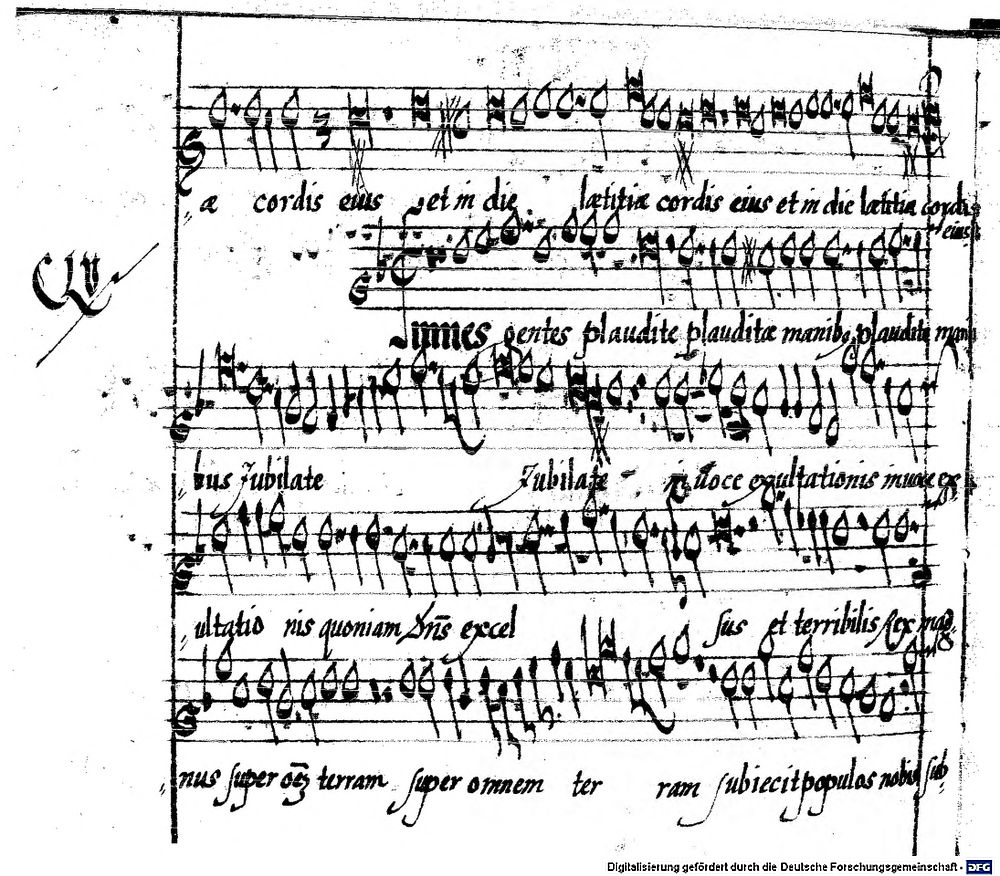 æ cordis eius et in die lætitiæ cordis eius et in die lætitiæ cordis
eius
CLV
Omnes gentes plaudite plauditæ manibꝰ plaudite mani
bus Jubilate Jubilate in voce exultationis in voce ex
ultatio nis quoniam Dñs excel sus et terribilis Rex mag
nus super oēz terram super omnem ter ram subiecit populos nobis sub
Digitalisierung gefördert durch die Deutsche Forschungsgemeinschaft - DFG